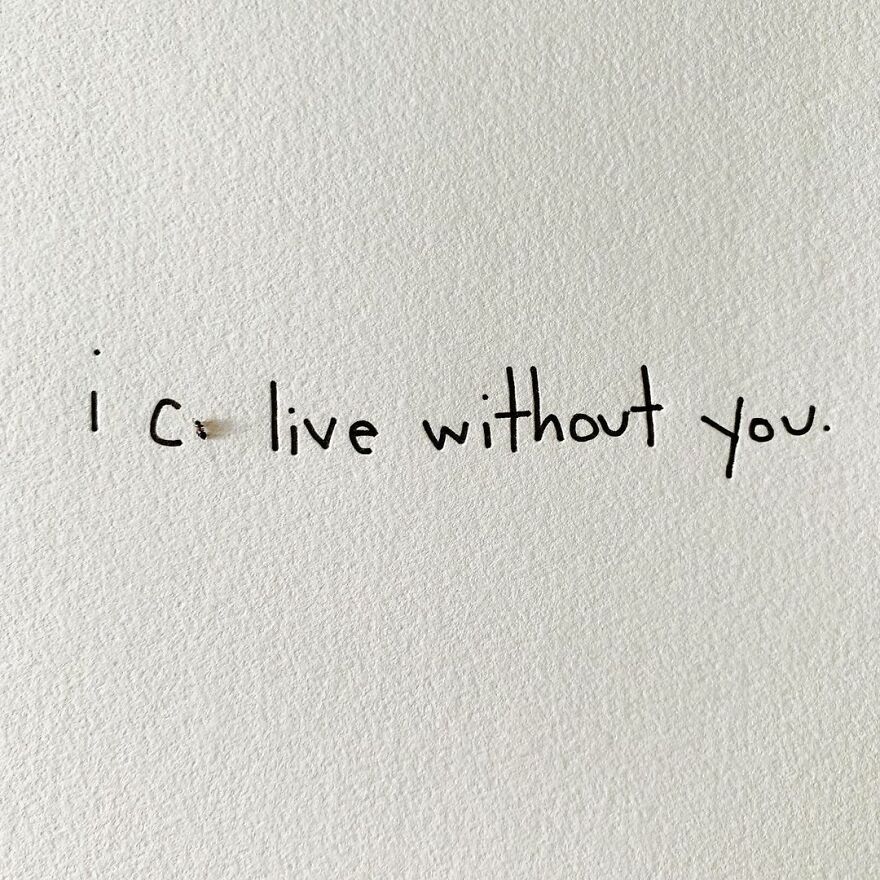 i c live without you.